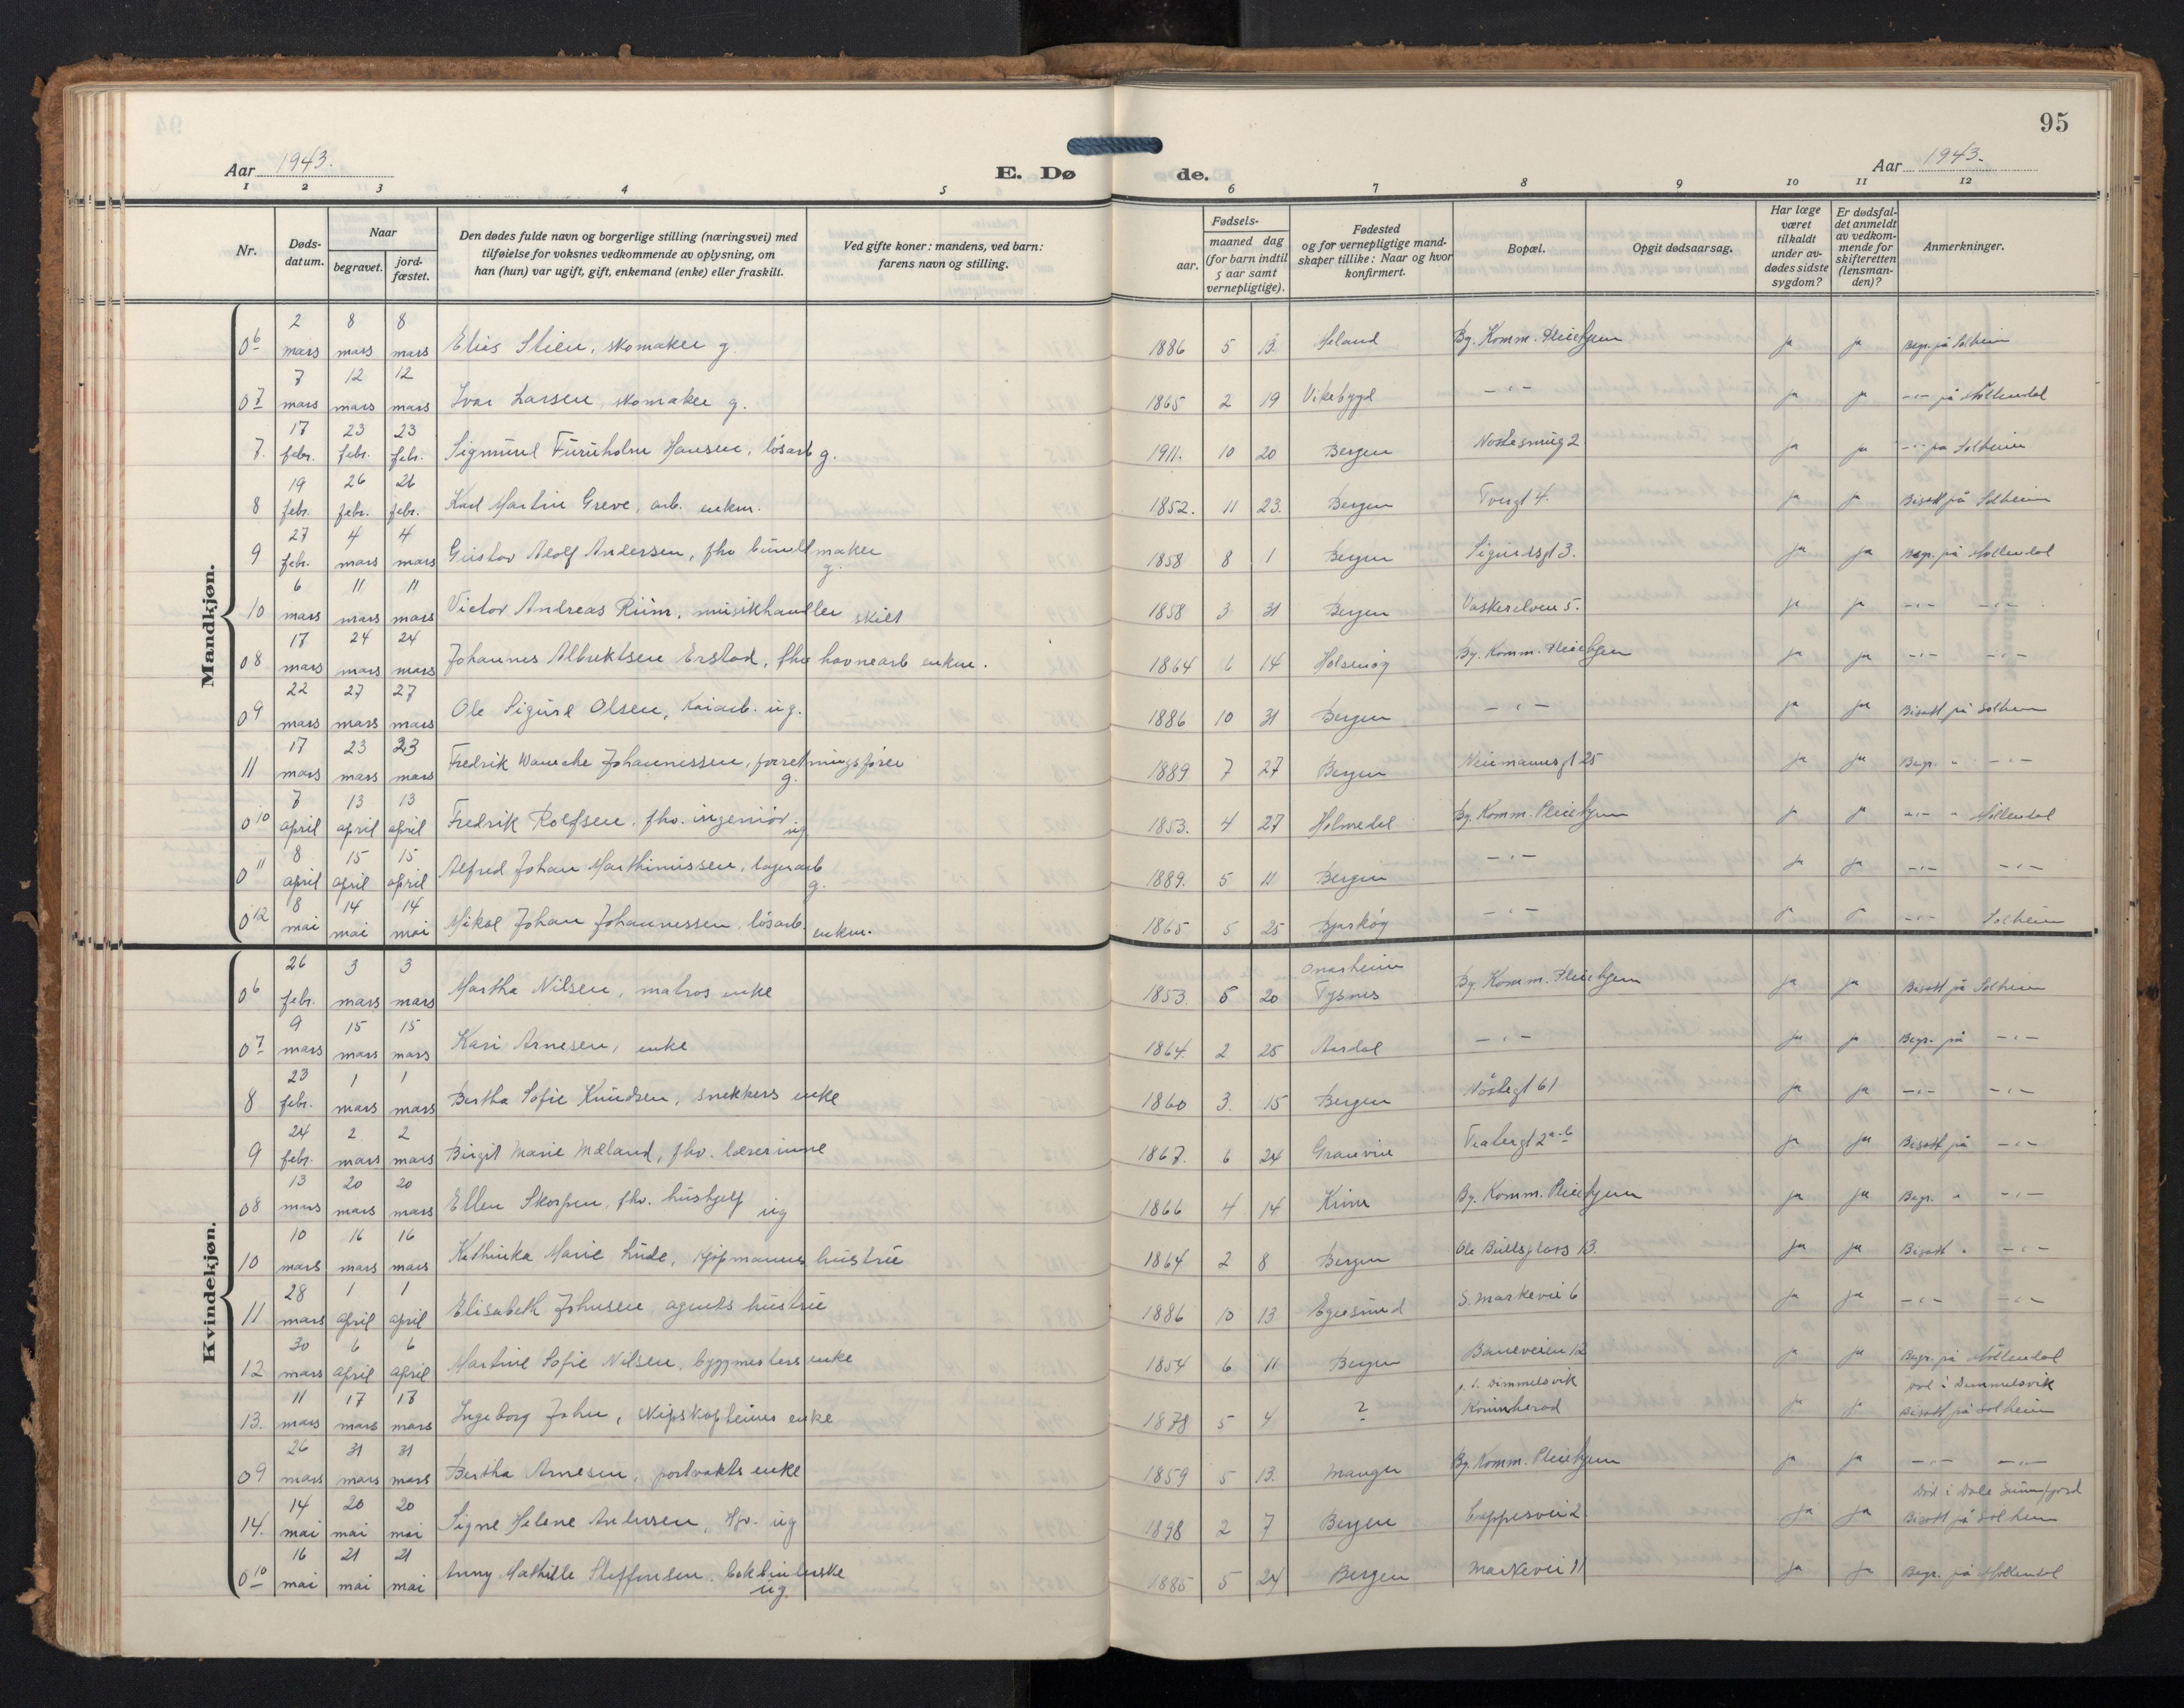 95
Aar 1943.
E. Dø
de.
Aar 1943.
1 2 3 4 5 6 7 8 9 10 11 12
Nr.
Døds-datum.
Naar
begravet.
jord-fæstet.
Den dødes fulde navn og borgerlige stilling (næringsvei) med
tilføielse for voksnes vedkommende av oplysning, om
han (hun) var ugift, gift, enkemand (enke) eller fraskilt.
Ved gifte koner: mandens, ved barn:
farens navn og stilling.
Fødsels-
aar.
maaned dag
(for barn indtil
5 aar samt
vernepligtige).
Fødested
og for vernepligtige mand-
skaper tillike: Naar og hvor
konfirmert.
Bopæl.
Opgit dødsaarsag.
Har læge
været
tilkaldt
under av-
dødes sidste
sygdom?
Er dødsfal-
det anmeldt
av vedkom-
mende for
skifteretten
(lensman-
den)?
Anmerkninger.
Mandkjøn.
06 2 mars 8 mars 8 mars Elias Stien, skomaker g. 1886 5 13. Meland Bg. Komm. Pleiehjem ja ja Begr. på Solheim
07 7 mars 12 mars 12 mars Ivar Larsen, skomaker g. 1865 2 19 Vikebygd -"- ja ja -"- på Møllendal
7. 17 febr. 23 febr. 23 febr. Sigmund Furuholm Hansen, løsarb g. 1911. 10 20 Bergen Nøstesmug 2 ja ja -"- på Solheim
8 19 febr. 26 febr. 26 febr. Karl Martin Greve, arb. enkm. 1852. 11 23. Bergen Tvergt 4. ja ja Bisatt på Solheim
9 27 febr. 4 mars 4 mars Gustav Adolf Andersen, fhv buntmaker g. 1858 8 1 Bergen Sigurdsgt 3. ja ja Begr. på Møllendal
10 6 mars 11 mars 11 mars Victor Andreas Riim, musikhandler skilt 1858 3 31 Bergen Vaskerelven 5. ja ja -"- -"-
08 17 mars 24 mars 24 mars Johannes Albrektsen Erstad, fhv havnearb enkm. 1864 6 14 Holsenøy Bg. Komm. Pleiehjem ja ja -"- -"-
09 22 mars 27 mars 27 mars Ole Sigurd Olsen, kaiarb. ug. 1886 10 31 Bergen -"- ja ja Bisatt på Solheim
11 17 mars 23 mars 23 mars Fredrik Johannessen, forretningsfører g. 1889 7 27 Bergen Neumannsgt 25 ja ja Begr. " -"-
010 7 april 13 april 13 april Fredrik Rolfsen, fhv. ingeniør ug 1853. 4 27 Holmedal Bg. Komm. Pleiehjem ja ja -"- " Møllendal
011 8 april 15 april 15 april Alfred Johan Marthinussen, lagerarb g. 1889. 5 11 Bergen -"- ja ja -"- -"-
012 8 mai 14 mai 14 mai Mikal Johan Johannessen, løsarb. enkm. 1865 5 25 Bjarkøy -"- ja ja -"- Solheim
Kvindekjøn.
06 26 febr. 3 mars 3 mars Martha Nilsen, matros enke 1853. 5 20 Onarheim Tysnes Bg. Komm. Pleiehjem ja ja Bisatt på Solheim
07 9 mars 15 mars 15 mars Kari Arnesen, enke 1864. 2 25 Aardal -"- ja ja Begr. på -"-
8 23 febr. 1 mars 1 mars Bertha Sofie Knudsen, snekkers enke 1860 3. 15 Bergen Nøstegt 61 ja ja -"- -"-
9 24 febr. 2 mars 2 mars Birgit Marie Mæland, fhv. lærerinne 1867. 6 24 Granvin Teatergt 2 a-b ja ja Bisatt på -"-
08 13 mars 20 mars 20 mars Ellen Skorpen, fhv. hushjelp ug 1866 4 14 Kinn Bg. Komm. Pleiehjem ja ja Begr. " -"-
10 10 mars 16 mars 16 mars Kathinka Marie Lude, kjøpmanns hustru 1864 2 8 Bergen Ole Bullsplass 13. ja ja Bisatt " -"-
11 28 mars 1 april 1 april Elisabeth Johnsen, agents hustru 1886 10 13 Egersund S. Markevei 6 ja ja -"- -"-
12 30 mars 6 april 6 april Martine Sofie Nilsen, byggmesters enke 1854 6 11 Bergen Baneveien 12 ja ja Begr. på Møllendal
13. 11 mars 17 mars 17 mars Ingeborg John, skipskapteins enke 1878 5 4 ? p. t. Dimmelsvik Kvinnherad ja ja Død i Dimmelsvik Bisatt på Solheim
09 26 mars 31 mars 31 mars Bertha Arnesen, portvakts enke 1859 5 13. Manger Bg. Komm. Pleiehjem ja ja -"- -"-
14. 14 mai 20 mai 20 mai Signe Helene Andersen, Hpr. ug 1898 2 7 Bergen Cappesvei 2 ja ja Død i Dale Sunnfjord Bisatt på Solheim
010 16 mai 21 mai 21 mai Anny Mathilde Steffensen, bokbinderske ug. 1885 5 24 Bergen Markevei 11 ja ja Begr. på Møllendal